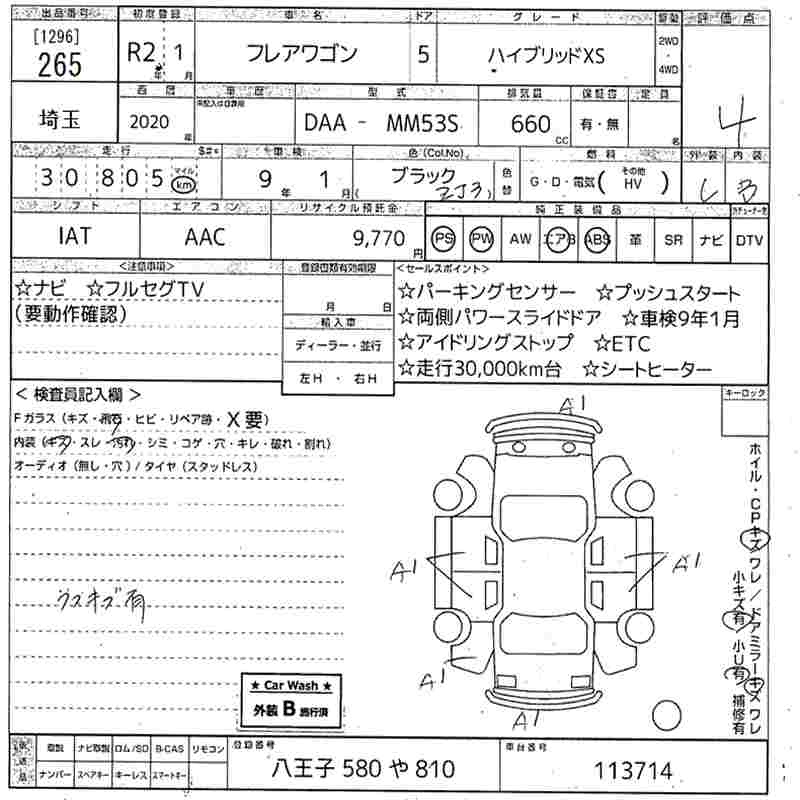 出品番号 初度登録 車名 ドア グレード 駆動 評価点
[1296]
265 R2年1月 フレアワゴン 5 ハイブリッドXS 2WD・4WD 4
西暦 車歴 型式 排気量 保証書 定員
未記入は自家用
埼玉 2020年 DAA - MM53S 660cc 有・無 名
走行 車検 色(Col.No) 燃料 外装 内装
30805 マイル km 9年1月 ブラック(ZJ3) 色替 G・D・電気(その他 HV) C B
シフト エアコン リサイクル預託金 純正装備品
IAT AAC 9,770円 PS PW AW エアB ABS 革 SR ナビ DTV
<注意事項> 登録書類有効期限 <セールスポイント>
☆ナビ ☆フルセグTV 月 日 ☆パーキングセンサー ☆プッシュスタート
(要動作確認) 輸入車 ☆両側パワースライドドア ☆車検9年1月
ディーラー・並行 ☆アイドリングストップ ☆ETC
左H・右H ☆走行30,000km台 ☆シートヒーター
<検査員記入欄> キーロック
Fガラス(キズ・飛石・ヒビ・リペア跡・X要)
内装(キズ・スレ・汚れ・シミ・コゲ・穴・キレ・破れ・割れ)
オーディオ(無し・穴)/タイヤ(スタッドレス)
A1
A1 A1
A1
A1
ホイル・CPキズワレ/ドアミラーキズワレ
小キズ有 小U有 補修有
ウスキズ有
★ Car Wash ★
外装B施行済
取説 ナビ取説 ロム/SD B-CAS リモコン 登録番号 車台番号
ナンバー スペアキー キーレス スマートキー 八王子 580 や 810 113714